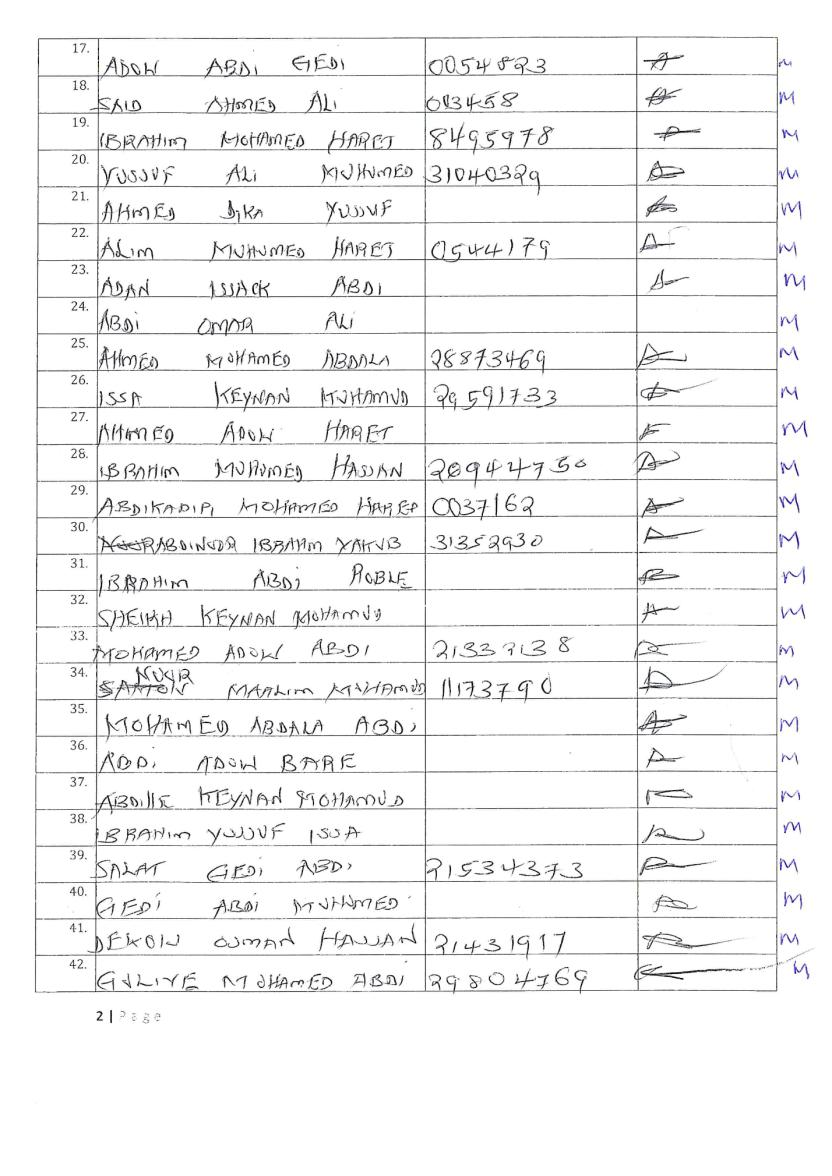 17. ADOW ABDI GEDI 0054823 M
18. SAID AHMED ALI M
19. IBRAHIM MOHAMED HARET 8495978 M
20. YUSSUF ALI MUHUMED 31040329 M
21. AHMED YUSSUF M
22. ALIM MUHUMED HARET 0544179 M
23. ADAN ISSACK ABDI M
24. ABDI OMAR ALI M
25. AHMED MOHAMED ABDALA 28873469 M
26. ISSA KEYNAN MUHAMUD 29591733 M
27. AHMED ADOW HARET M
28. IBRAHIM MUHUMED HASSAN 20944730 M
29. ABDIKADIR MOHAMED HARED 0037162 M
30. ABDINOOR IBRAHIM YAKUB 31352930 M
31. IBRAHIM ABDI ROBLE M
32. SHEIKH KEYNAN MOHAMUD M
33. MOHAMED ADOW ABDI M
34. NUUR MAALIM MUHAMUD 11173790 M
35. MOHAMED ABDALA ABDI M
36. ABDI ADOW BARE M
37. ABDILLE KEYNAN MOHAMUD M
38. IBRAHIM YUSSUF ISSA M
39. SALAT GEDI ABDI 21534373 M
40. GEDI ABDI MUHUMED M
41. DEKOW OSMAN HASSAN 21431917 M
42. GULIYE MOHAMED ABDI 29804769 M
2 | Page